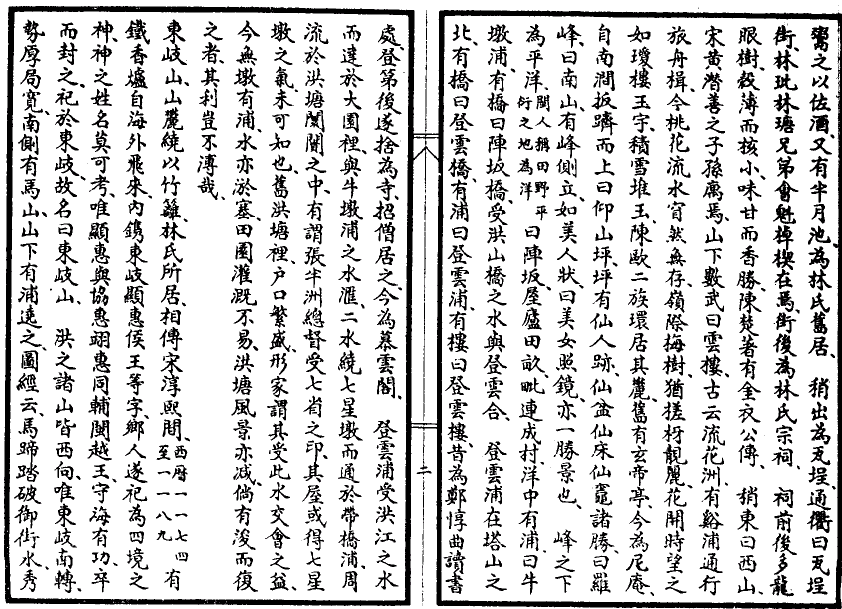 鬻之以佐酒、又有半月池、為林氏舊居、　稍出為瓦埕、通衢曰瓦埕
街、林玭林瑭兄弟會魁棹楔在焉、街後為林氏宗祠、　祠前後多龍
眼樹、穀薄而核小、味甘而香、勝陳焚著有金衣公傳、　稍東曰西山、
宋黃潛善之子孫厲焉、山下數武曰雲樓、古云流花洲、有谿浦通行
旅舟楫、今桃花流水窅然無存、嶺際梅樹猶槎枒靚麗、花開時望之
如瓊樓玉宇、積雪堆玉、陳歐二族環居其麓、舊有玄帝亭、今為尼庵、
自南澗扳躋而上曰仰山坪、坪有仙人跡、仙盆仙床仙竈諸勝、曰羅
峰、曰南山、有峰側立、如美人狀、曰美女照鏡、亦一勝景也、　峰之下
為平洋、閩人稱田野平衍之地為洋曰陣坂、屋廬田畝、毗連成村、洋中有浦曰牛
墩浦、有橋曰陣坂橋、受洪山橋之水、與登雲合、　登雲浦在塔山之
北、有橋曰登雲橋、有浦曰登雲浦、有樓曰登雲樓、昔為鄭惇曲讀書
二
處、登第後遂捨為寺、招僧居之、今為慕雲閣、　登雲浦受洪江之水
而達於大園裡、與牛墩浦之水滙、二水繞七星墩而通於帶橋浦、周
流於洪塘闤闠之中、有謂張半洲總督受七省之印、其屋或得七星
墩之氣、未可知也、舊洪塘裡户口繁盛、形家謂其受此水交會之益、
今無墩有浦、水亦淤塞、田園灌溉不易、洪塘風景亦減、倘有浚而復
之者、其利豈不溥哉、
東岐山、山麓繞以竹籬、林氏所居、相傳宋淳熙間、西曆一一七四至一一八九有
鐵香爐自海外飛來、內鐫東岐顯惠侯王等字、鄉人遂祀為四境之
神、神之姓名莫可考、唯顯惠與協惠、翊惠同輔閩越王、守海有功、卒
而封之、祀於東岐、故名曰東岐山、　洪之諸山皆西向、唯東岐南轉、
勢厚局寬、南側有馬山、山下有浦遶之、圖經云、馬蹄踏破御街水、秀